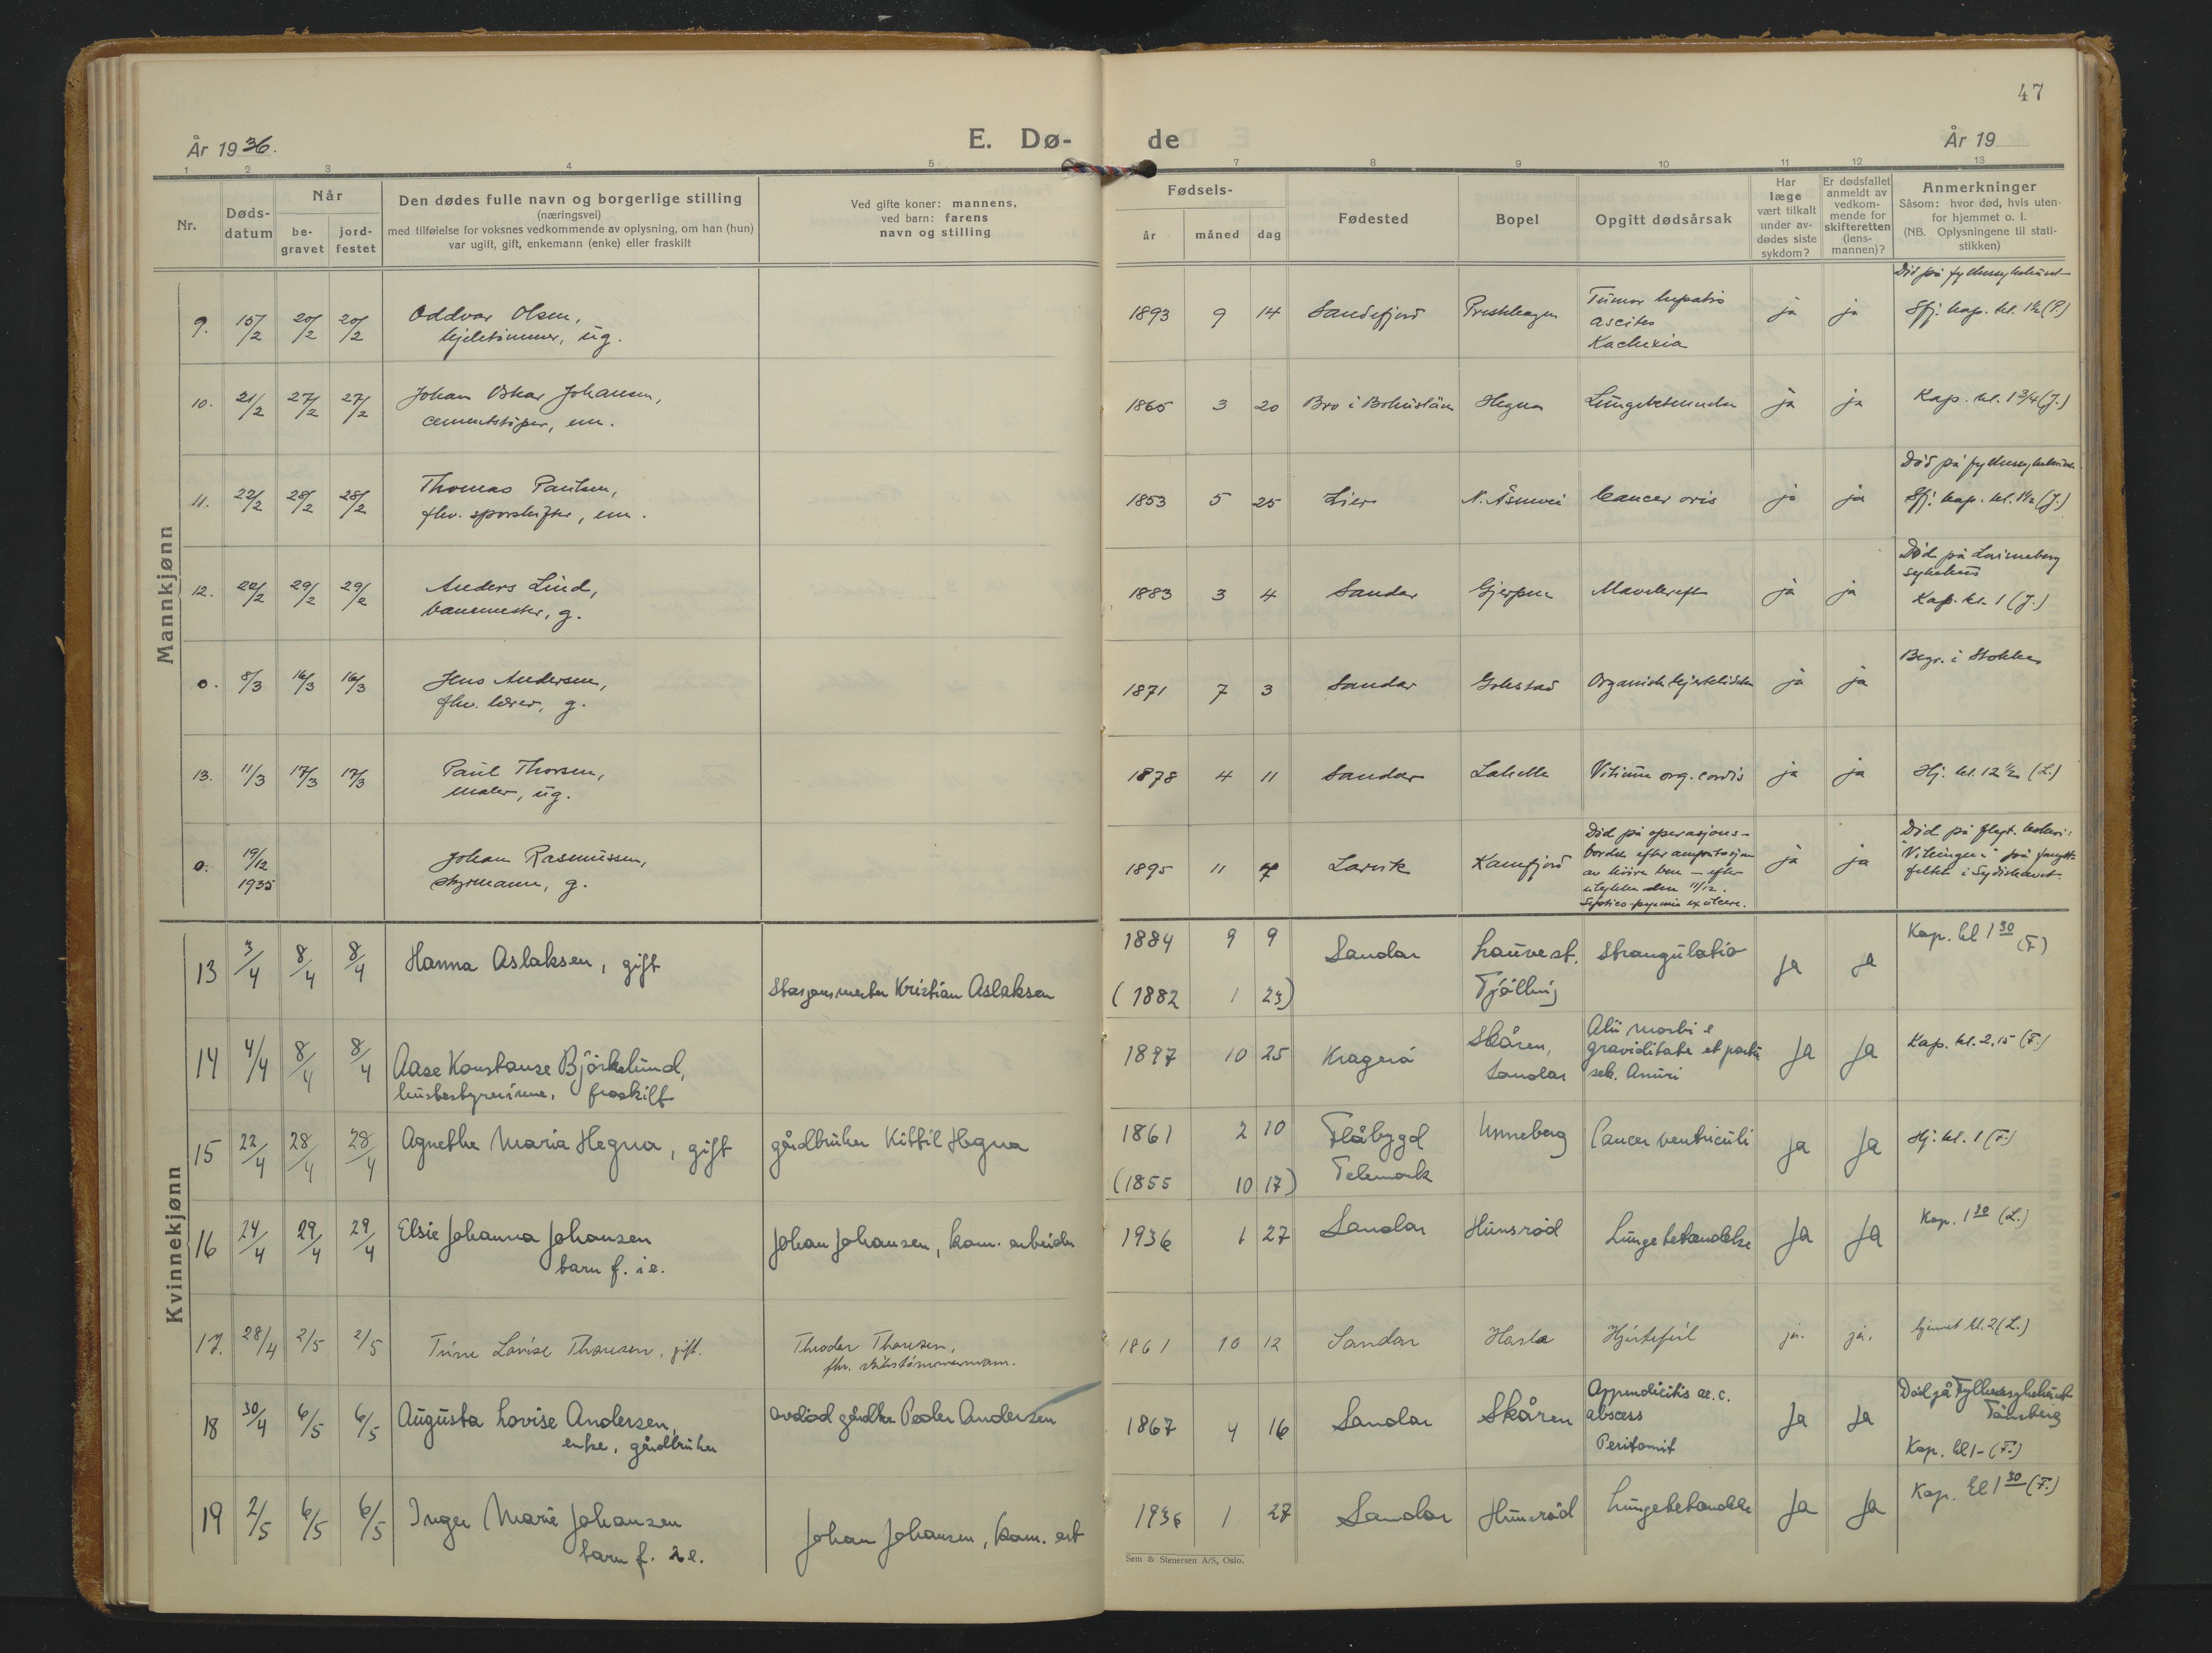 47
År 1936.
E. Dø-
de
År 19
1 2 3 4 5 7 8 9 10 11 12 13
Nr.
Døds-
datum
Når
be-
gravet
jord-
festet
Den dødes fulle navn og borgerlige stilling
(næringsvei)
med tilføielse for voksnes vedkommende av oplysning, om han (hun)
var ugift, gift, enkemann (enke) eller fraskilt
Ved gifte koner: mannens,
ved barn: farens
navn og stilling
Fødsels-
år
måned
dag
Fødested
Bopel
Opgitt dødsårsak
Har
læge
vært tilkalt
under av-
dødes siste
sykdom?
Er dødsfallet
anmeldt av
vedkom-
mende for
skifteretten
(lens-
mannen)?
Anmerkninger
Såsom: hvor død, hvis uten-
for hjemmet o. l.
(NB. Oplysningene til stati-
stikken)
Mannkjønn
9. 15/2 20/2 20/2
Oddvar Olsen,
ug.
1893 9 14 Sandefjord
Tumor hepatis
Ascites
Kachexia
ja ja
Død på fylkessykehuset
Sfj. kap. kl. 1½ (P.)
10. 21/2 27/2 27/2
Johan Oskar Johansen,
cementstøper, em.
1865 3 20 Bro i Bohuslän Hegna Lungebetennelse ja ja Kap. kl. 1 3/4 (J.)
11. 22/2 28/2 28/2
Thomas Paulsen,
fhv. sporskifter, em.
1853 5 25 Lier N. Åsenvei Cancer oris ja ja
Død på fylkessykehuset
Sfj. kap. kl. 1½ (J.)
12. 29/2 29/2
Anders Lind,
banemester, g.
1883 3 4 Sandar Gjerpen Mavekreft ja ja
Død på
sykehus
Kap. kl. 1 (J.)
0. 8/3 16/3 16/3
Jens Andersen,
fhv. lærer, g.
1871 7 3 Sandar Gokstad Organisk hjertelidelse ja ja
Begr. i Stokke
13. 11/3 17/3 17/3
Paul Thorsen,
maler, ug.
1878 4 11 Sandar Lahelle Vitium org. cordis ja ja Hj. kl. 12½ (L.)
0. 19/12
1935
Johan Rasmussen,
styrmann, g.
1895 11 7 Larvik Kamfjord
Død på operasjons-
bordet efter amputasjon
av høire ben — efter
ulykke den 11/12.
Septico-pyemia ex ulcere.
ja ja
Død på flyt. kokeri:
"Vikingen" på fangst-
feltet i Sydishavet.
Kvinnekjønn
13 3/4 8/4 8/4 Hanna Aslaksen, gift
Stasjonsmester Kristian Aslaksen
1884 9 9
(1882 1 23)
Sandar
Lauve st.
Tjølling
Strangulatio
ja ja
Kap. kl 1 30 (F)
14 4/4 8/4 8/4
Aase Konstanse Bjørkelund,
husbestyrerinne, fraskilt
1897 10 25 Kragerø
Skåren,
Sandar
Alii morbi e
graviditate et partu
sek. Anuri
Ja Ja
Kap. kl. 2.15 (F.)
15 22/4 28/4 28/4
Agnethe Maria Hegna, gift
gårdbruker Kittil Hegna
1861 2 10
(1855 10 17)
Flåbygd
Telemark
Unneberg Cancer ventriculi Ja Ja Hj. kl. 1 (F.)
16 24/4 29/4 29/4
Elsie Johanna Johansen
barn f. i e.
Johan Johansen, kom. arbeider
1936 1 27 Sandar Hunsrød Lungebetendelse Ja Ja Kap. 1 30 (L.)
17. 28/4 2/5 2/5
Trine Lovise Thoresen, gift.
Theodor Thoresen,
1861 10 12 Sandar Hasle Hjertefeil ja. ja. hjemmet kl. 2 (L.)
18 30/4 6/5 6/5
Augusta Lovise Andersen,
enke, gårdbruker
avdød gårdbr Peder Andersen
1867 4 16 Sandar Skåren
Appendicitis ac. c.
abscess
Peritonit
Ja Ja
Død på Fylkessykehuset
Tønsberg
Kap. kl 1- (F.)
19 2/5 6/5 6/5
Inger Marie Johansen
barn f. i e.
Johan Johansen, kom. arb
1936 1 27 Sandar Hunsrød Lungebetendelse Ja Ja Kap. kl 1 30 (F.)
Sem & Stenersen A/S, Oslo.